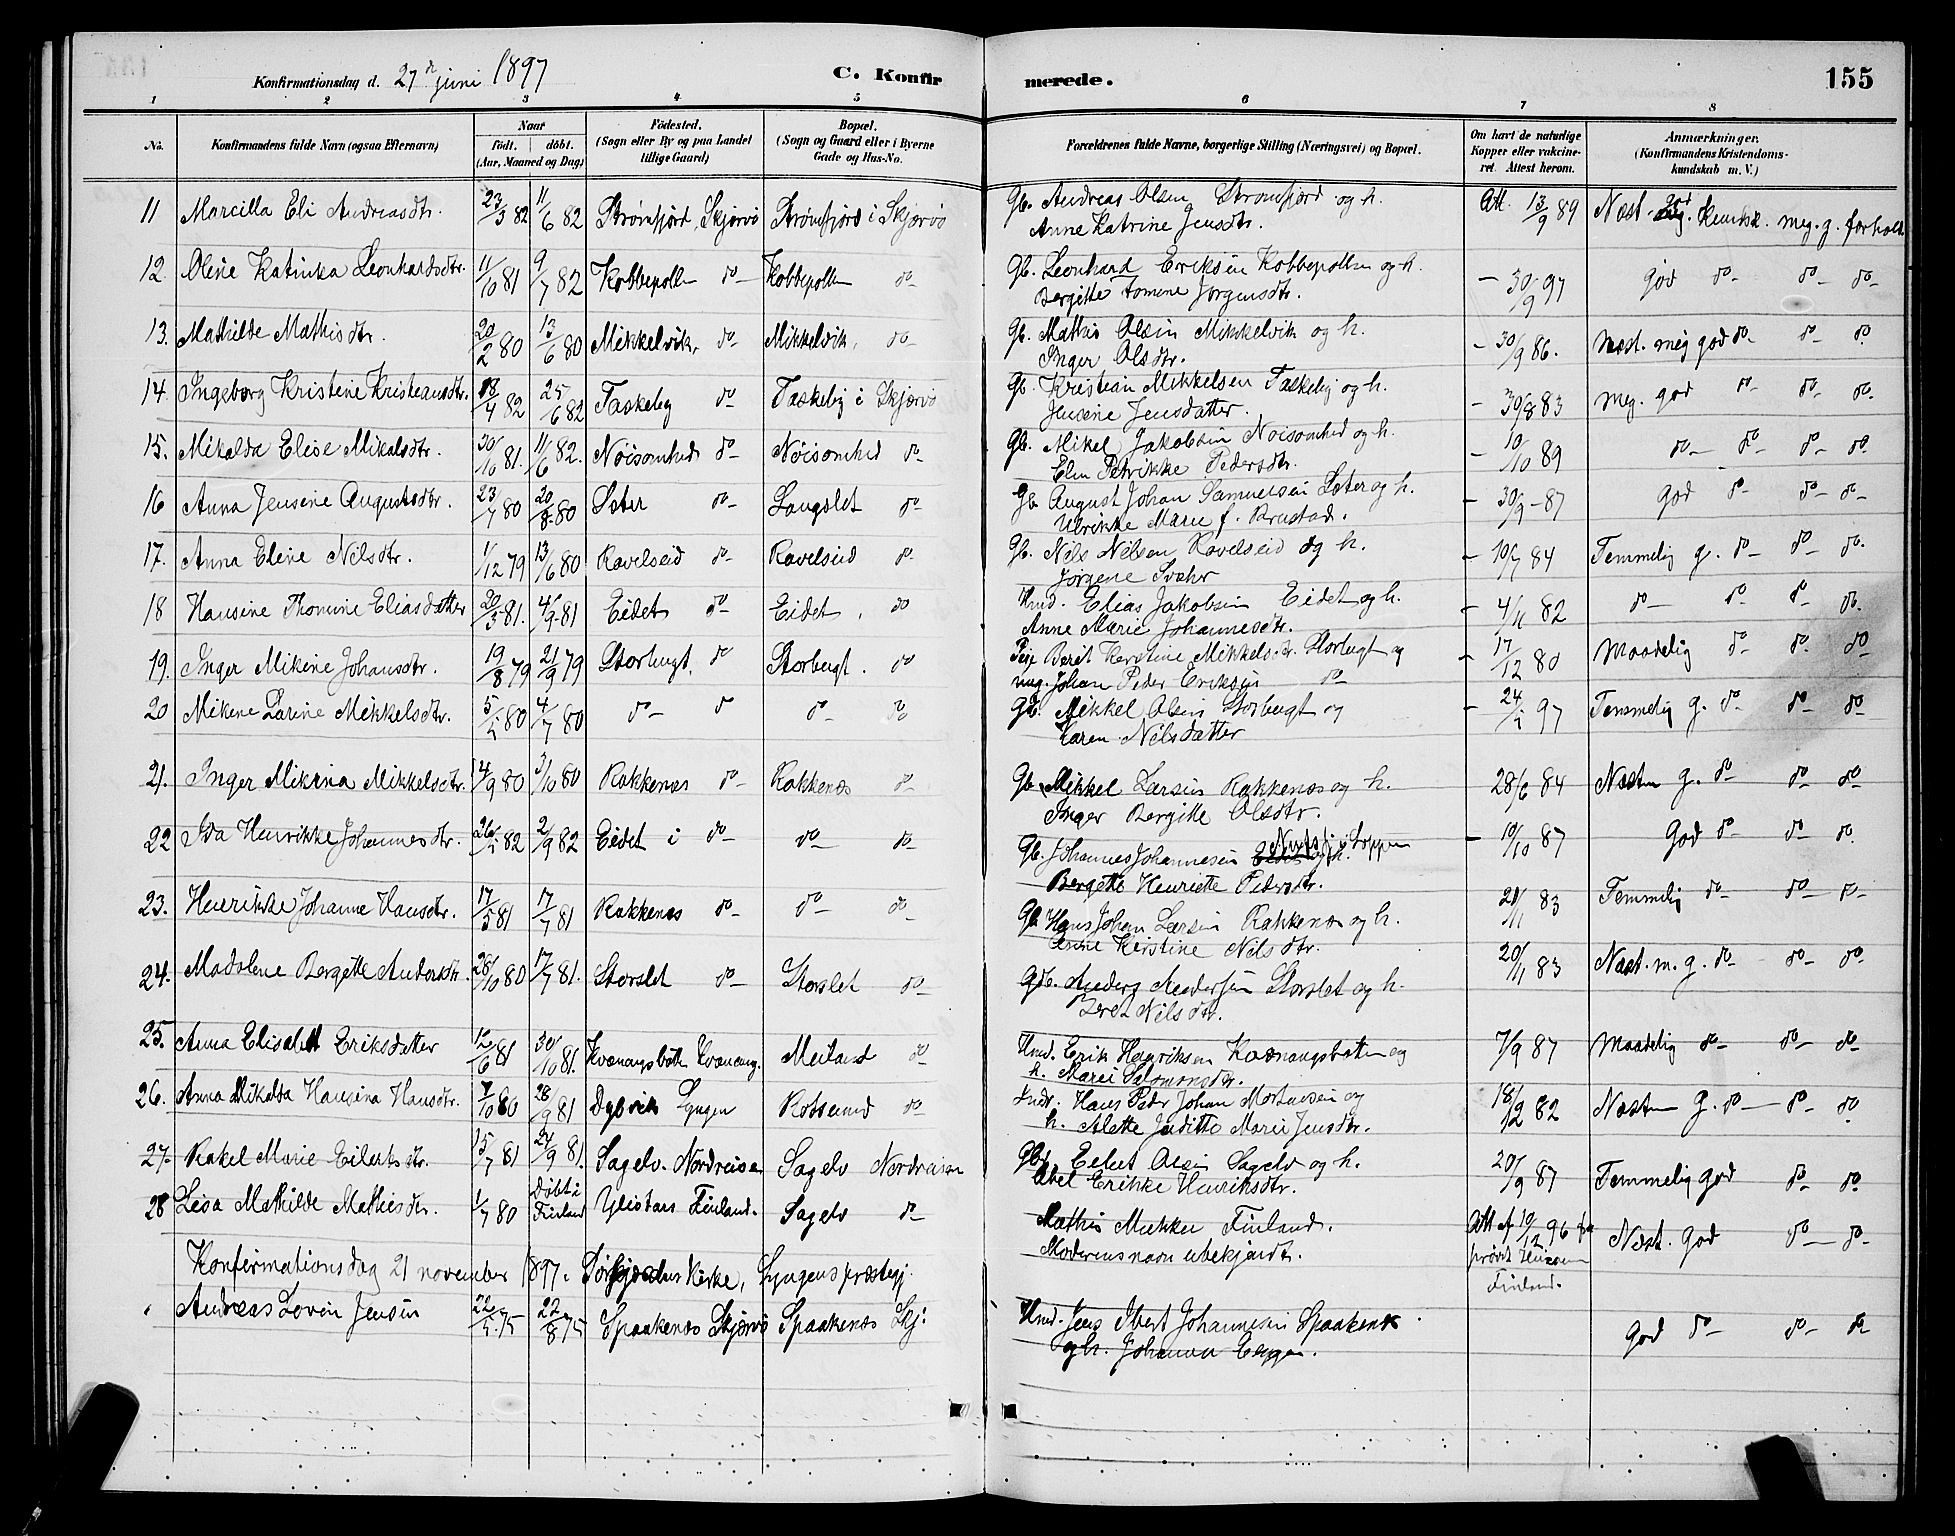 Konfirmationsdag d. 27de juni 1897
C. Konfirmerede.
155
1 2 3 4 5 6 7 8
No.
Konfirmandens fulde Navn (ogsaa Efternavn)
Naar
født. døbt.
(Aar, Maaned og Dag)
Fødested.
(Sogn eller By og paa Landet
tillige Gaard)
Bopæl.
(Sogn og Gaard eller i Byerne
Gade og Hus-No.
Forældrenes fulde Navne, borgerlige Stilling (Næringsvei) og Bopæl.
Om havt de naturlige
Kopper eller vakcine-
ret. Attest herom.
Anmærkninger,
(Konfirmandens Kristendoms-
kundskab m. V.)
11 Marcilla Eli Andreasdtr. 23/3 82 11/6 82 Strømfjord, Skjervø Strømfjord i Skjervø Gb. Andreas Olsen Strømfjord og h. Att. 13/9 89 Næst. god Kundsk. meg. g. forhold
Anne Katrine Jensdtr.
12. Oline Katinka Leonhardsdtr. 11/10 81 9/7 82 Kobbepollen do- Kobbepollen do- Gb. Leonhard Eriksen Kobbepollen og h. - 30/9 97 god do- do- do-
Bergitte Tomine Jørgensdtr.
13. Mathilde Mathisdtr. 20/2 80 13/6 80 Mikkelvik, do- Mikkelvik, do- Gb. Mathis Olsen Mikkelvik og h. - 30/9 86. Næst. meg god do- do- do
Inger Olsdtr.
14. Ingeborg Kristine Kristeansdtr. 18/4 82 25/6 82 Taskeby do- Taskeby i Skjervø Gb. Kristian Mikkelsen Taskeby og h. - 30/8 83 meg. god do- do- do.
Jensine Jensdatter.
15. Mikalda Elise Mikalsdtr. 30/10 81. 11/6 82. Nøisomhed do- Nøisomhed do- Gb. Mikel Jakobsen Nøisomhed og h. - 10/10 89 do- do- do- do-
Elen Petrikke Pedersdtr.
16 Anna Jensine Augustsdtr. 23/7 80 20/8 80 Sæter do- Langslet do- Gb August Johan Samuelsen Sæter og h. - 30/9 - 87 god do- do- do-
Ulrikke Marie f. Brustad.
17. Anna Eline Nilsdtr. 1/12 79 13/6 80 Ravelseid do- Ravelseid do- Gb. Nils Nilsen Ravelseid og h. - 10/7 84 Temmelig g. do- do- do.
Jørgene
18 Hansine Thomine Eliasdatter 20/3 81. 4/9 81 Eidet do- Eidet, do Hmd. Elias Jakobsen Eidet og h. - 4/11 82 do- do- do- do.
Anne Marie Johannesdtr.
19. Inger Mikine Johansdtr. 19/8 79 21/9 79 Storbugt, do Storbugt. do Pige Berit Kerstine Mikkelsdtr. Storbugt og - 17/12 80 Maadelig do- do- do
ung. Johan Peder Eriksen do-
20 Mikene Larine Mikkelsdtr. 5/5 80 4/7 80 do- do do- do Gb. Mikkel Olsen Storbugt og - 24/5 97 Temmelig g. do- do- do-
Karen Nilsdatter
21. Inger Mikina Mikkelsdtr. 14/9 80 3/10 80 Rakkenes do- Rakkenes do- Gb. Mikkel Larsen Rakkenes og h. 28/6 84 Næsten g. do do do
Inger Bergitte Olsdtr.
22 Ida Henrikke Johannesdtr. 26/5 82 2/9 82 Eidet i do- do- do- Gb. Johannes Johannesen i Loppen - 10/10 87 God do- do- do.
Bergette Henriette Pedersdtr.
23. Henrikke Johanne Hansdtr. 17/5 81 17/7 81 Rakkenes do- do- do- Gb Hans Johan Larsen Rakkenes og h. 21/11 83 Temmelig do- do- do-
Anne Kerstine Nilsdtr.
24. Madalene Bergette Andersdtr. 28/10 80 17/7 81. Storslet do- Storslet do- Gb. Anders Andersen Storslet og h. 20/11 83 Næst. m. g. do- do- do-
Beret Nilsdtr.
25. Anna Elisabet Eriksdatter 12/6 81 30/10 81. Kvænangsbotn Kvænang. Meiland do Hmd. Erik Henriksen Kvænangsbotn og 7/9 87 Maadelig do- do- do-
h. Marei Salomonsdtr.
26. Anna Mikalda Hansina Hansdtr. 7/10 80 28/9 81 Dybvik Lyngen Rotsund do- Indr. Hans Peder Johan Mortensen og 18/12 82 Næsten g. do- do- do
h. Alette Juditte Marie Jensdtr.
27. Rakel Marie Eilertsdtr. 15/7 81 24/9 81. Sagelv. Nordreisen Sagelv Nordreisen Gb. Eilert Olsen Sagelv og h. 20/9 87 Temmelig god do- do-
Abel Erikke Henriksdtr.
28 Lisa Mathilde Mathisdtr. 1/7 80 Døbt i Finland Ylistaro Finland. Sagelv do- Mathis Finland. Att af 10/12 96 fra Næst. god do- do-
Moderens navn ubekjendt. prøvst
Finland.
Konfirmationsdag 21 november 1897. Kirke, Lyngens præstegj.
Andreas Lovin Jensen 22/5 75 22/8 75 Spaakenes Skjervø Spaakenes Skj: Hmd. Jens Ibert Johannesen Spaakenes God do- do- do-
og h. Johanna